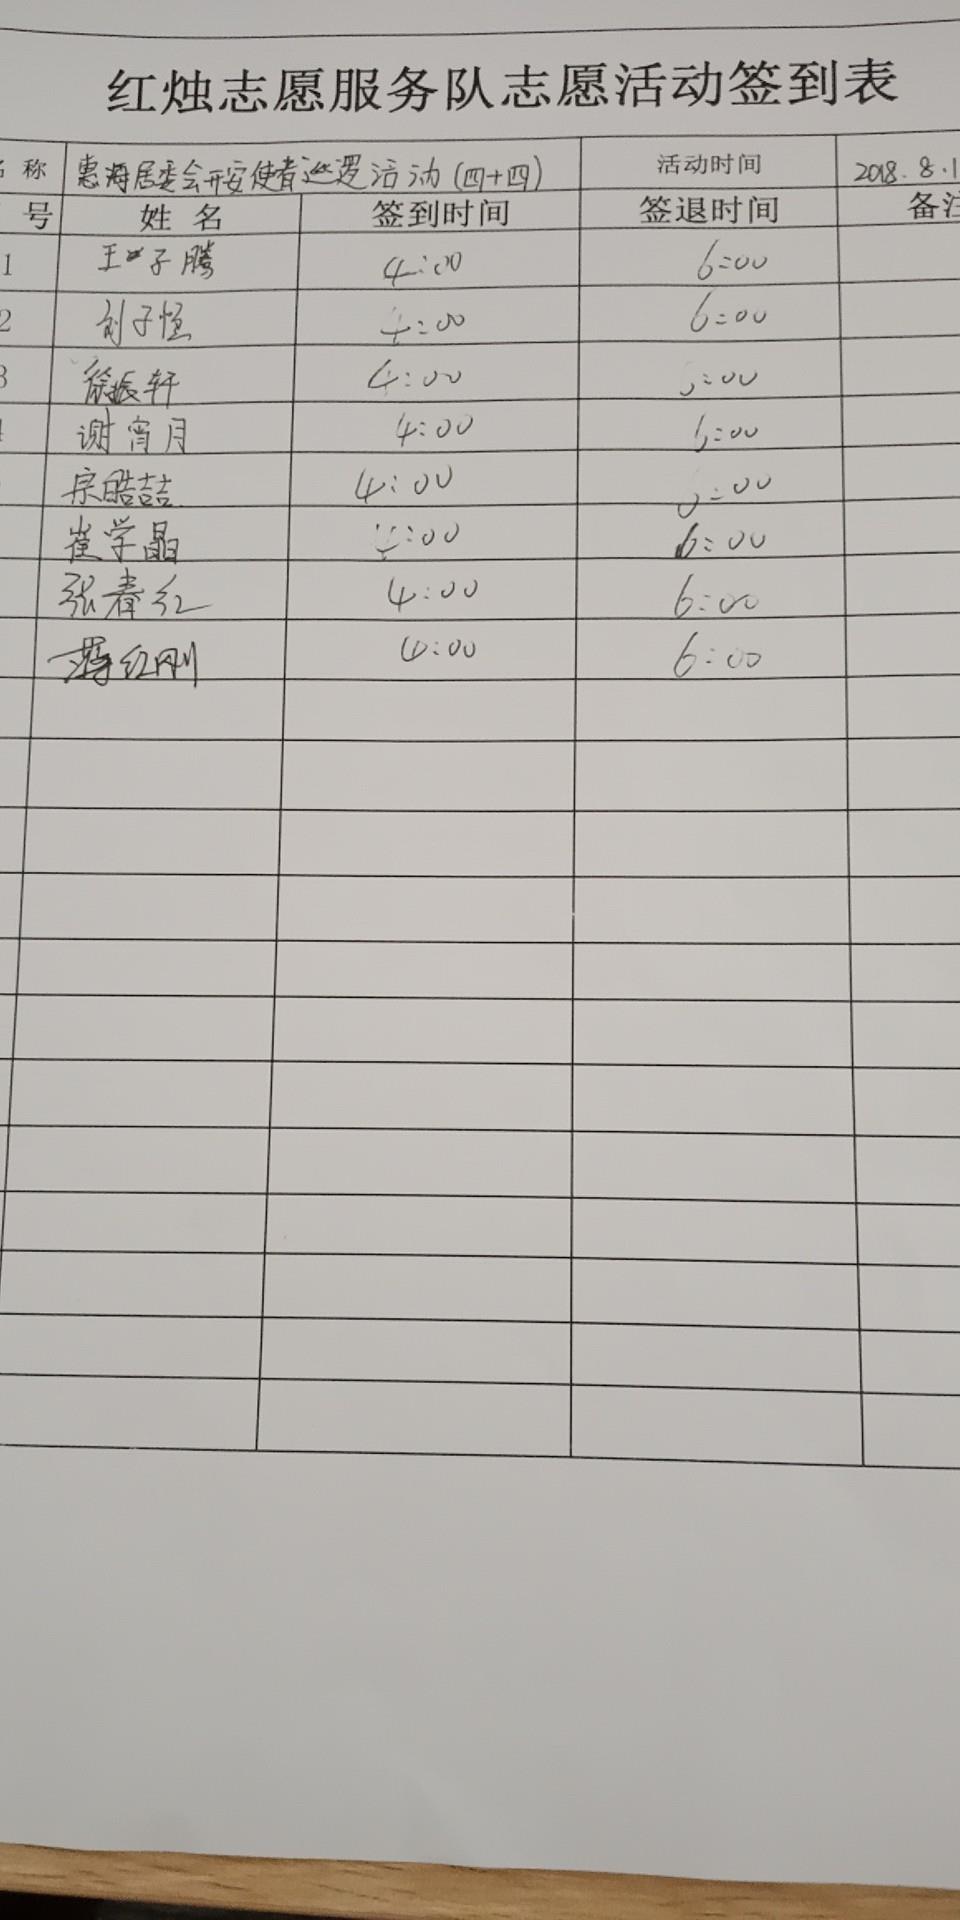 红烛志愿服务队志愿活动签到表
名称 惠海居委会开安使者巡逻活动(四十四) 活动时间 2018.8.1
号 姓名 签到时间 签退时间 备注
1 王子腾 4:00 6:00
2 刘子恒 4:00 6:00
3 徐振轩 4:00 :00
谢宵月 4:00 6:00
宗皓喆 4:00 :00
崔学晶 :00 6:00
张春红 4:00 6:00
红刚 4:00 6:00